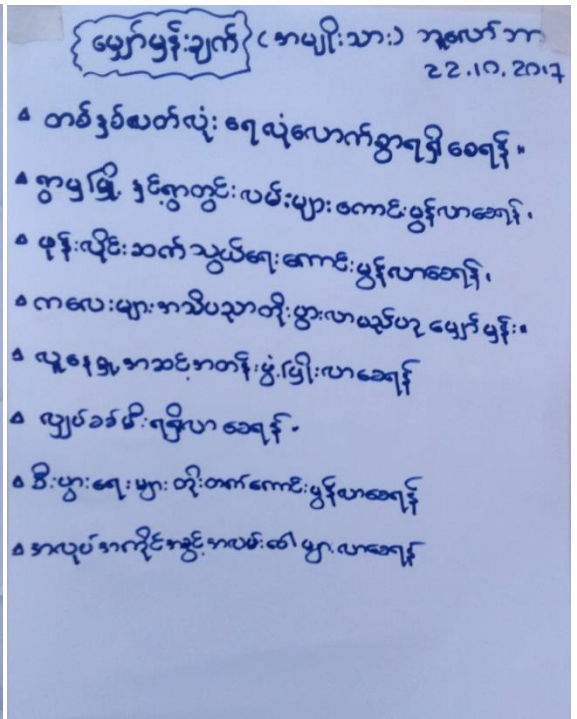 မျှော်မှန်းချက် (အမျိုးသား) ဘူလော်ဘာ
22.10.2017
တစ်နှစ်ပတ်လုံး ရေလုံလောက်စွာရရှိစေရန်။
ရွာမှမြို့ နှင့်ရွာတွင်းလမ်းများကောင်းမွန်လာစေရန်.
ဖုန်းလိုင်းဆက်သွယ်ရေးကောင်းမွန်လာစေရန်.
ကလေးများအသိပညာတိုးပွားလာမည်ဟု မျှော်မှန်း။
လူနေမှုအဆင့်အတန်းဖွံ့ဖြိုးလာစေရန်
လျှပ်စစ်မီးရရှိလာစေရန်.
စီးပွားရေးများတိုးတက်ကောင်းမွန်လာစေရန်
အလုပ်အကိုင်အခွင့်အလမ်းပေါများလာစေရန်